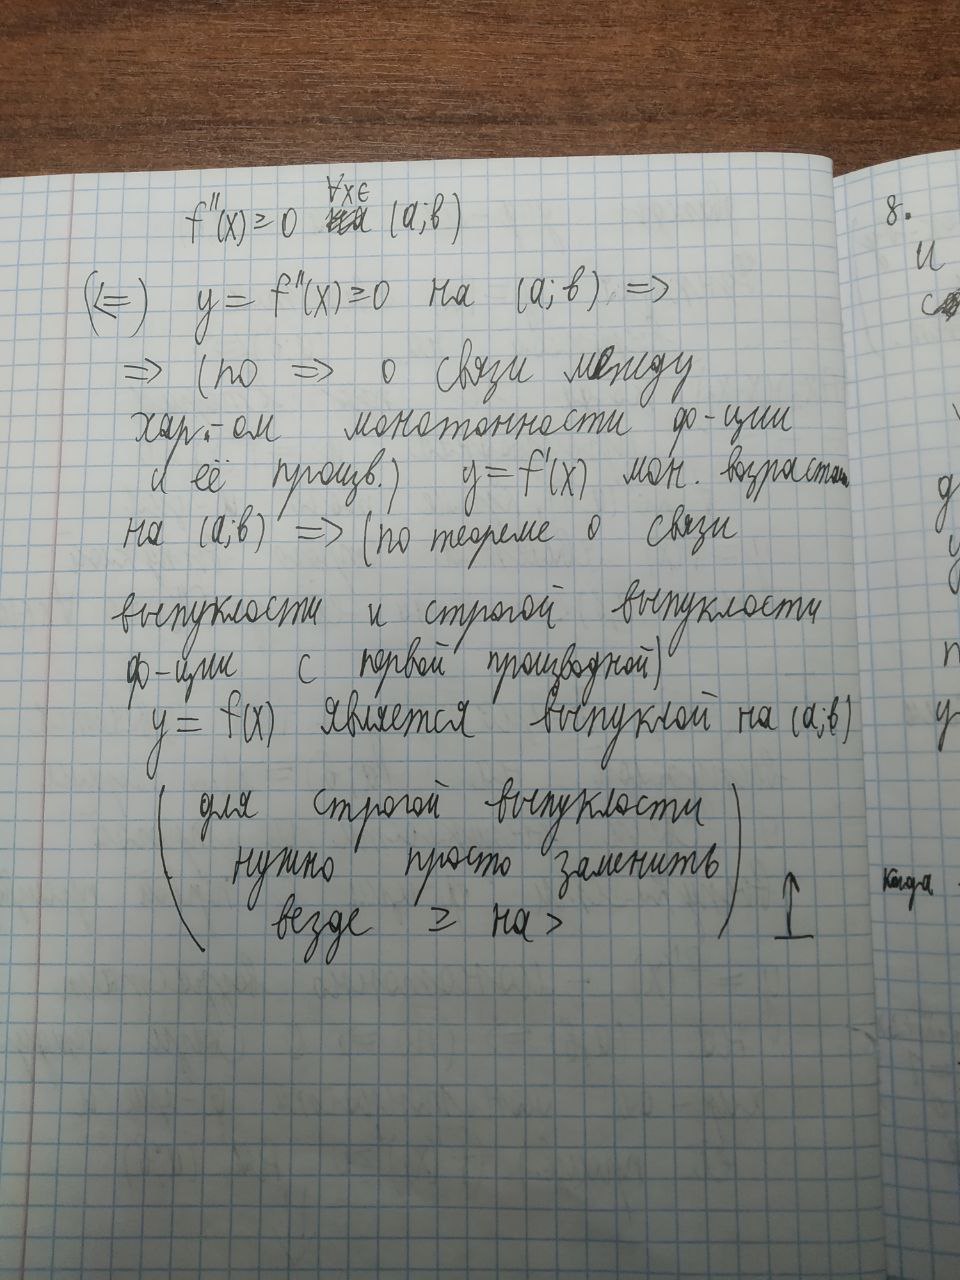 ∀x∈
f''(x) ≥ 0 (a;b)
(<=) y = f''(x) ≥ 0 на (a;b) =>
=> (по => о связи между
хар.-ом монотонности ф-ции
и её произв.) y = f'(x) мон. возрастает
на (a;b) => (по теореме о связи
выпуклости и строгой выпуклости
ф-ции с первой производной)
y = f(x) является выпуклой на (a;b)
(для строгой выпуклости
нужно просто заменить
везде ≥ на >)
8.
и
д
у
п
у
когда